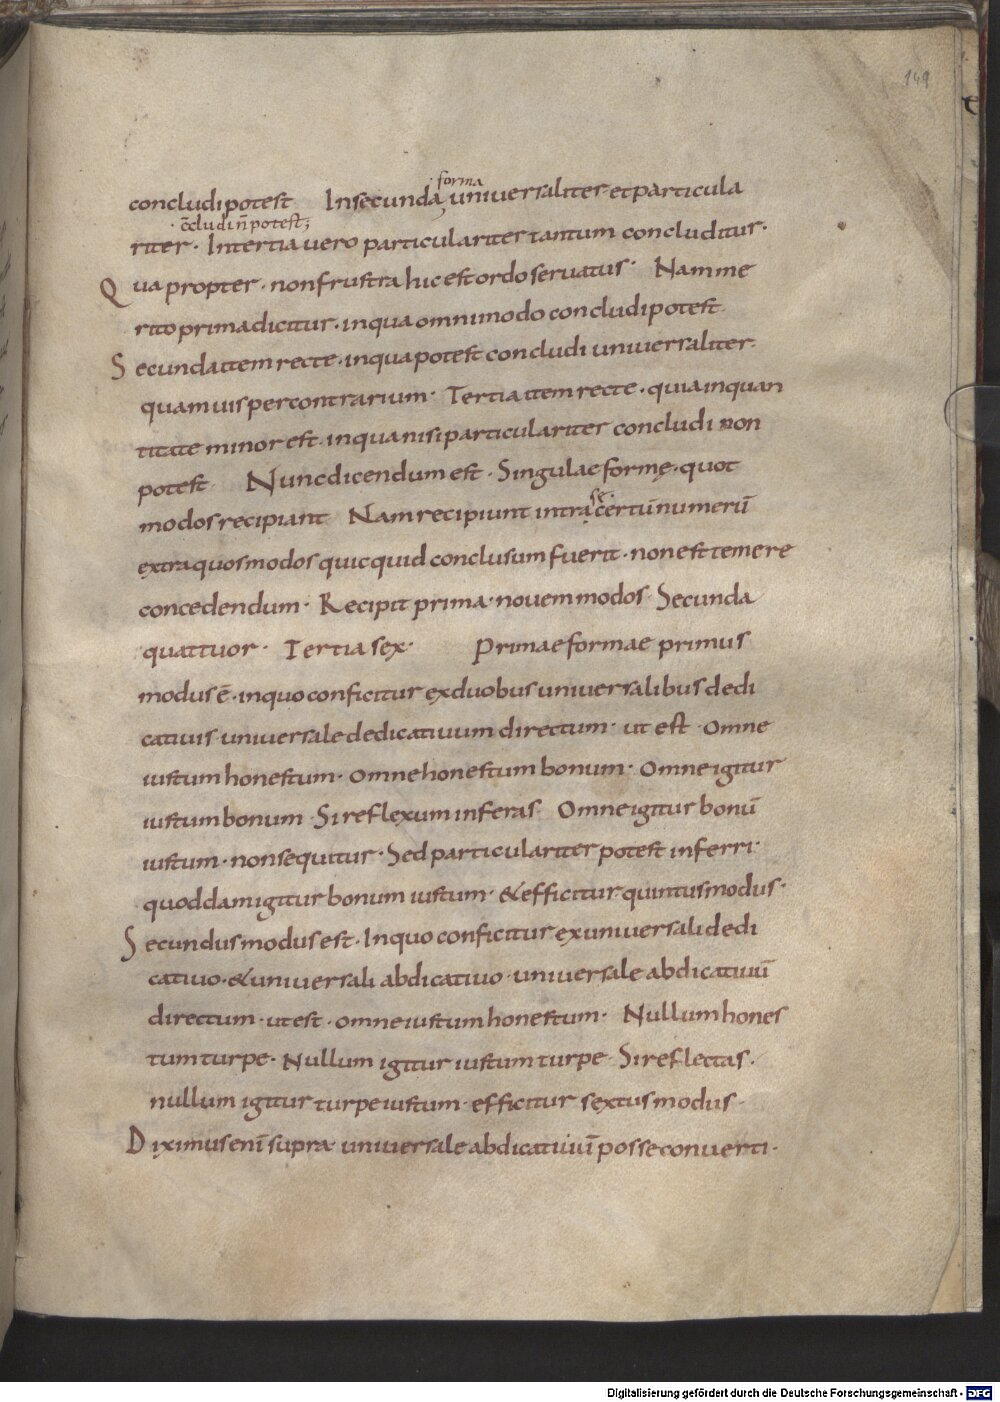 149
forma
concludi potest In secunda universaliter et particula
c̄cludi n̄ potest;
riter · In tertia vero particulariter tantum concluditur·
Qua propter · non frustra hic est ordo servatus · Nam me
rito prima dicitur · in qua omnimodo concludi potest
Secunda item recte · in qua potest concludi universaliter
quamvis per contrarium · Tertia item recte · quia in quan
titate minor est · in qua nisi particulariter concludi non
potest Nunc dicendum est · Singulae formę · quot
se
modos recipiant Nam recipiunt intra certū numerū
extra quos modos quicquid conclusum fuerit · non est temere
concedendum · Recipit prima · novem modos · Secunda
quattuor · Tertia sex · Primae formae primus
modus ē · in quo conficitur ex duobus universalibus dedi
cativis universale dedicativum directum · ut est · Omne
iustum honestum · Omne honestum bonum · Omne igitur
iustum bonum · Si reflexum inferas Omne igitur bonū
iustum · non sequitur · Sed particulariter potest inferri ·
quoddam igitur bonum iustum · & efficitur quintus modus ·
Secundus modus est · In quo conficitur ex universali dedi
cativo · & universali abdicativo · universale abdicativū
directum · ut est · omne iustum honestum · Nullum hones
tum turpe · Nullum igitur iustum turpe Si reflectas ·
nullum igitur turpe iustum · efficitur sextus modus ·
Diximus enī supra · universale abdicativū posse converti ·
Digitalisierung gefördert durch die Deutsche Forschungsgemeinschaft - DFG